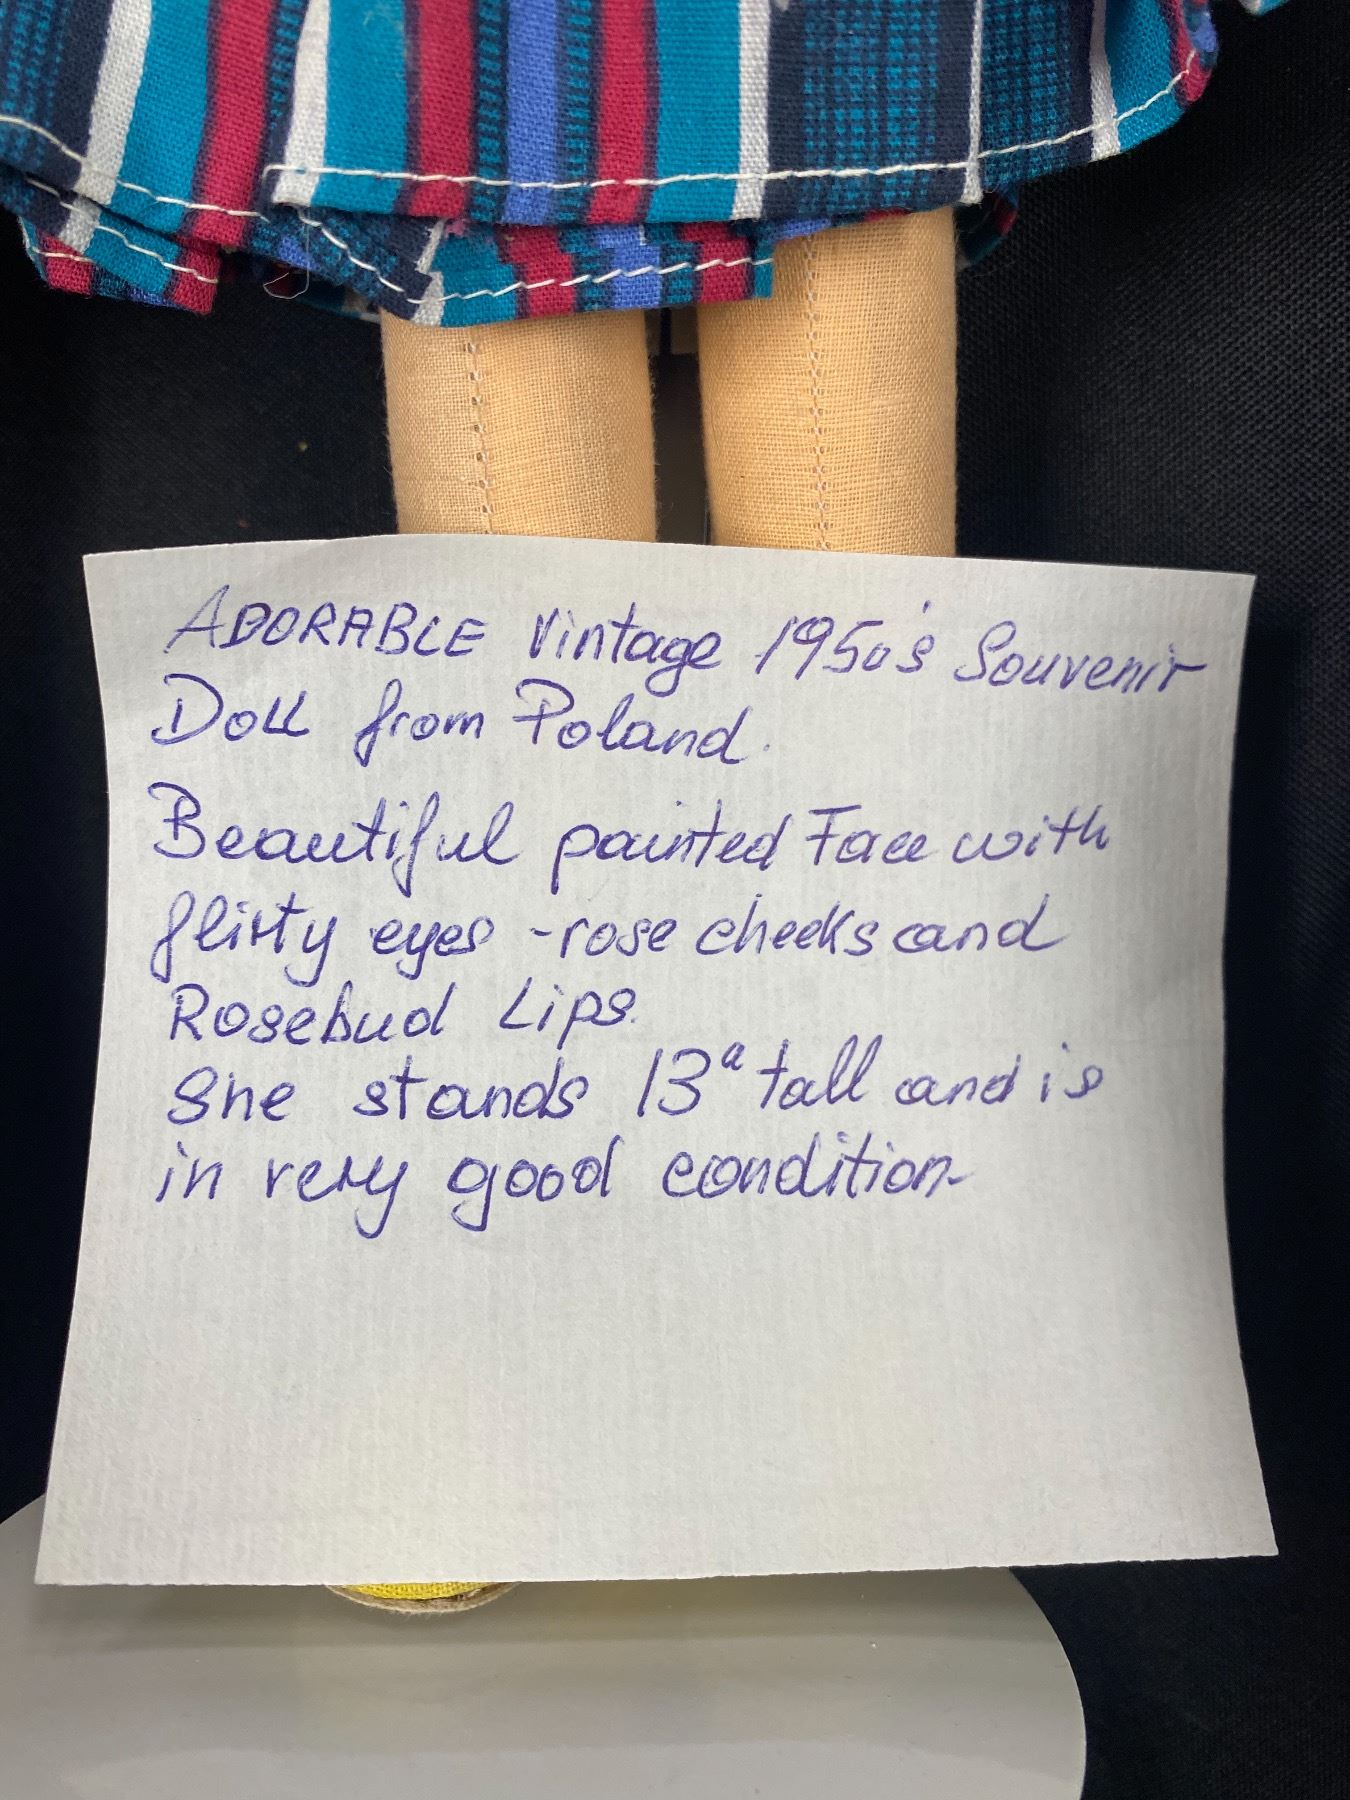 ADORABLE Vintage 1950's Souvenir
Doll from Poland.
Beautiful painted Face with
flirty eyes - rose cheeks and
Rosebud Lips.
She stands 13" tall and is
in very good condition.